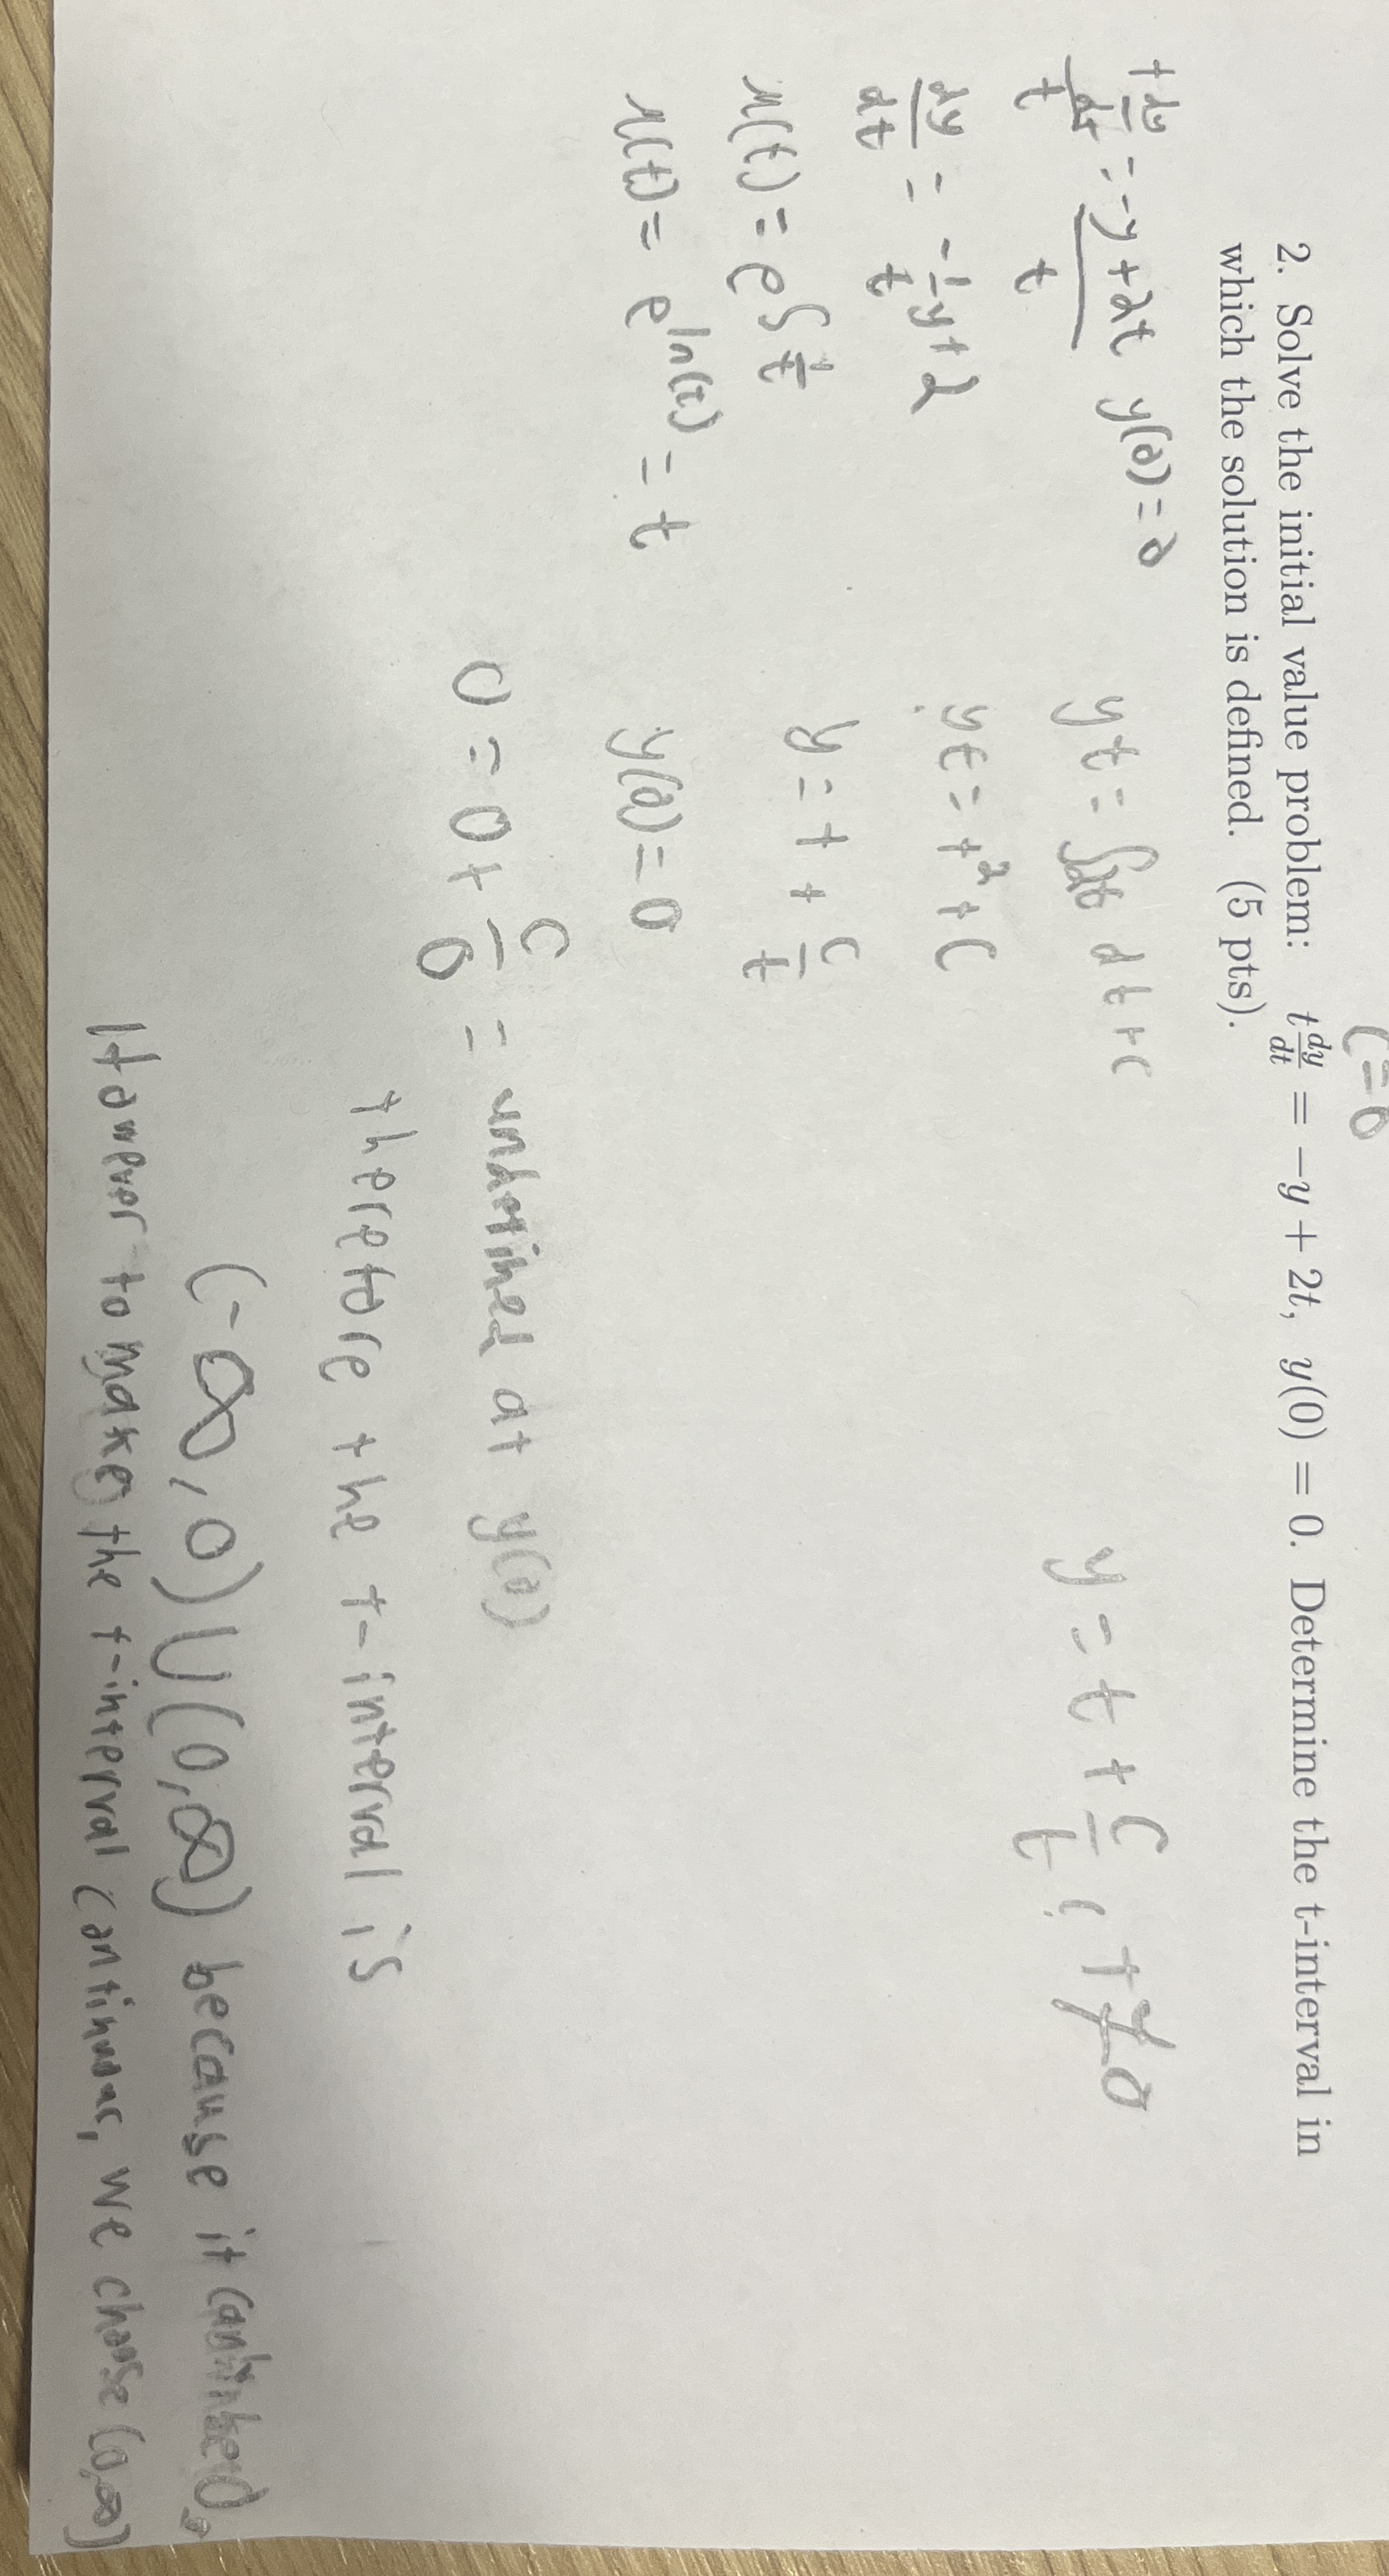 C=0
2. Solve the initial value problem: t dy/dt = −y + 2t, y(0) = 0. Determine the t-interval in
which the solution is defined. (5 pts).
t dy/dt / t = -y+2t / t y(0)=0
dy/dt = -1/t y+2
μ(t) = e^∫1/t
μ(t) = e^ln(t) = t
yt = ∫2t dt+c
yt = t²+C
y = t + C/t
y(0)=0
0 = 0 + C/0 = undefined at y(0)
y = t + C/t ; t ≠ 0
therefore the t-interval is
(-∞,0)∪(0,∞) because it can't be 0.
However to make the t-interval continuous, we choose (0,∞)